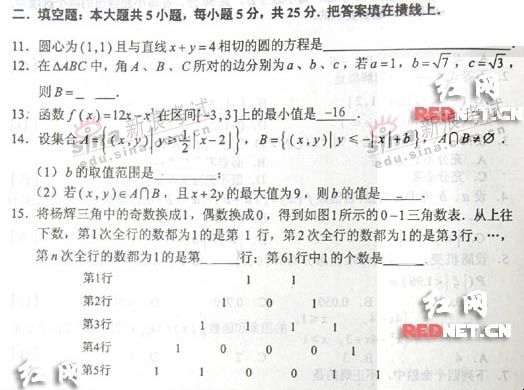 二. 填空题: 本大题共 5 小题, 每小题 5 分, 共 25 分. 把答案填在横线上.
11. 圆心为(1,1)且与直线 x+y=4 相切的圆的方程是
12. 在△ABC中, 角A、B、C所对的边分别为a、b、c, 若a=1, b=√7, c=√3,
则B=
13. 函数 f(x)=12x-x³ 在区间[-3,3]上的最小值是 -16 .
14. 设集合A={(x,y)|y≥½|x-2|}, B={(x,y)|y≤-|x|+b}, A∩B≠∅.
(1) b的取值范围是 ;
(2) 若(x,y)∈A∩B, 且x+2y的最大值为9, 则b的值是 .
15. 将杨辉三角中的奇数换成1, 偶数换成0, 得到如图1所示的0-1三角数表. 从上往
下数, 第1次全行的数都为1的是第 1 行, 第2次全行的数都为1的是第3行, …,
第n次全行的数都为1的是第 行; 第61行中1的个数是 .
第1行 1 1
第2行 1 0 1
第3行 1 1 1 1
第4行 1 0 0 0 1
第5行 1 1 0 0 1 1
红网
REDNET.CN
红网
REDNET.CN
sina 新浪考试
edu.sina
sina 新浪考试
edu.sina